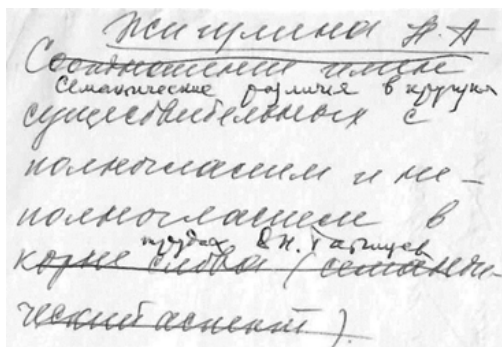 Жигулина Н. А
Соотношение имен
Семантические различия в группах
существительных с
полногласием и не-
полногласием в
трудах В.Н. Татищев
корне слова (семанти-
ческий аспект).